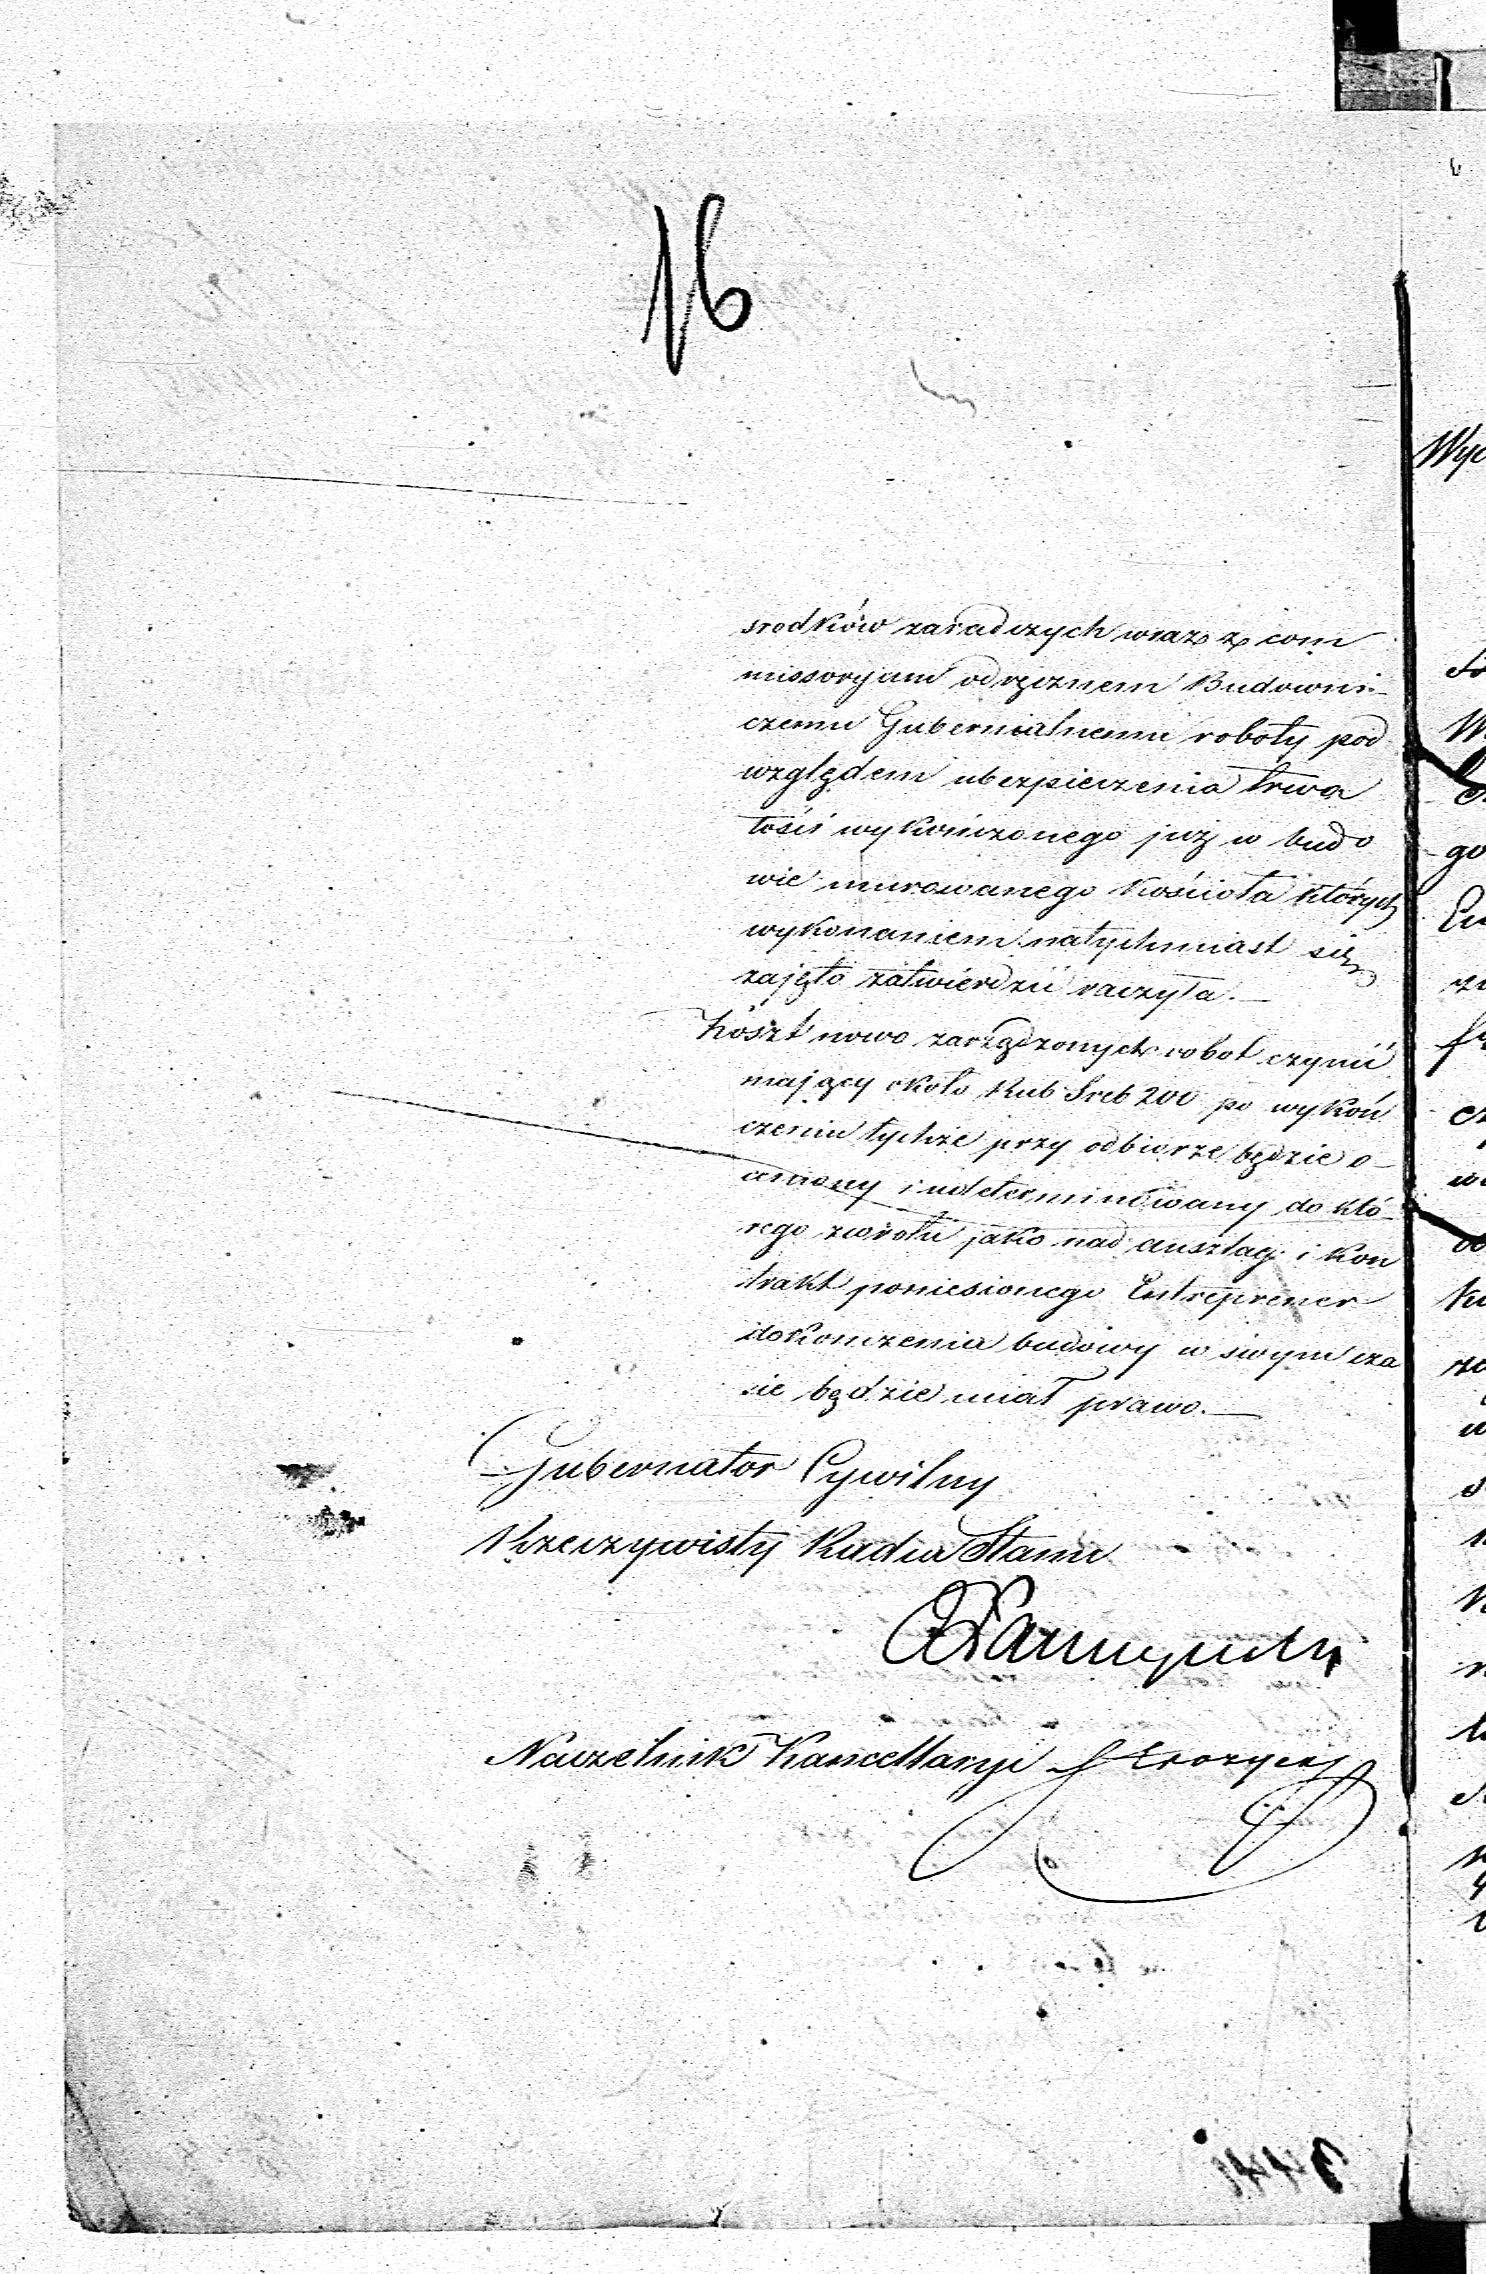 16
srodków zaradczych wraz z com
missoryum odręcznem Budowni-
czemu Gubernialnemu roboty pod
względem ubezpieczenia trwa
łości wykończonego już w budo
wie murowanego Kościoła których
wykonaniem natychmiast się
zajęto zatwierdzić raczyła.—
Koszt nowo zarządzonych robot czynić
mający około Rub Sreb 200 po wykoń
czeniu tychże przy odbiorze będzie o-
ceniony i udeterminowany do któ-
rego zwrotu jako nad anszlag i kon
trakt poniesionego Entreprener
dokonczenia budowy w swym cza
sie będzie miał prawo.—
Gubernator Cywilny
Rzeczywisty Radca Stanu
Naczelnik Kancellaryi